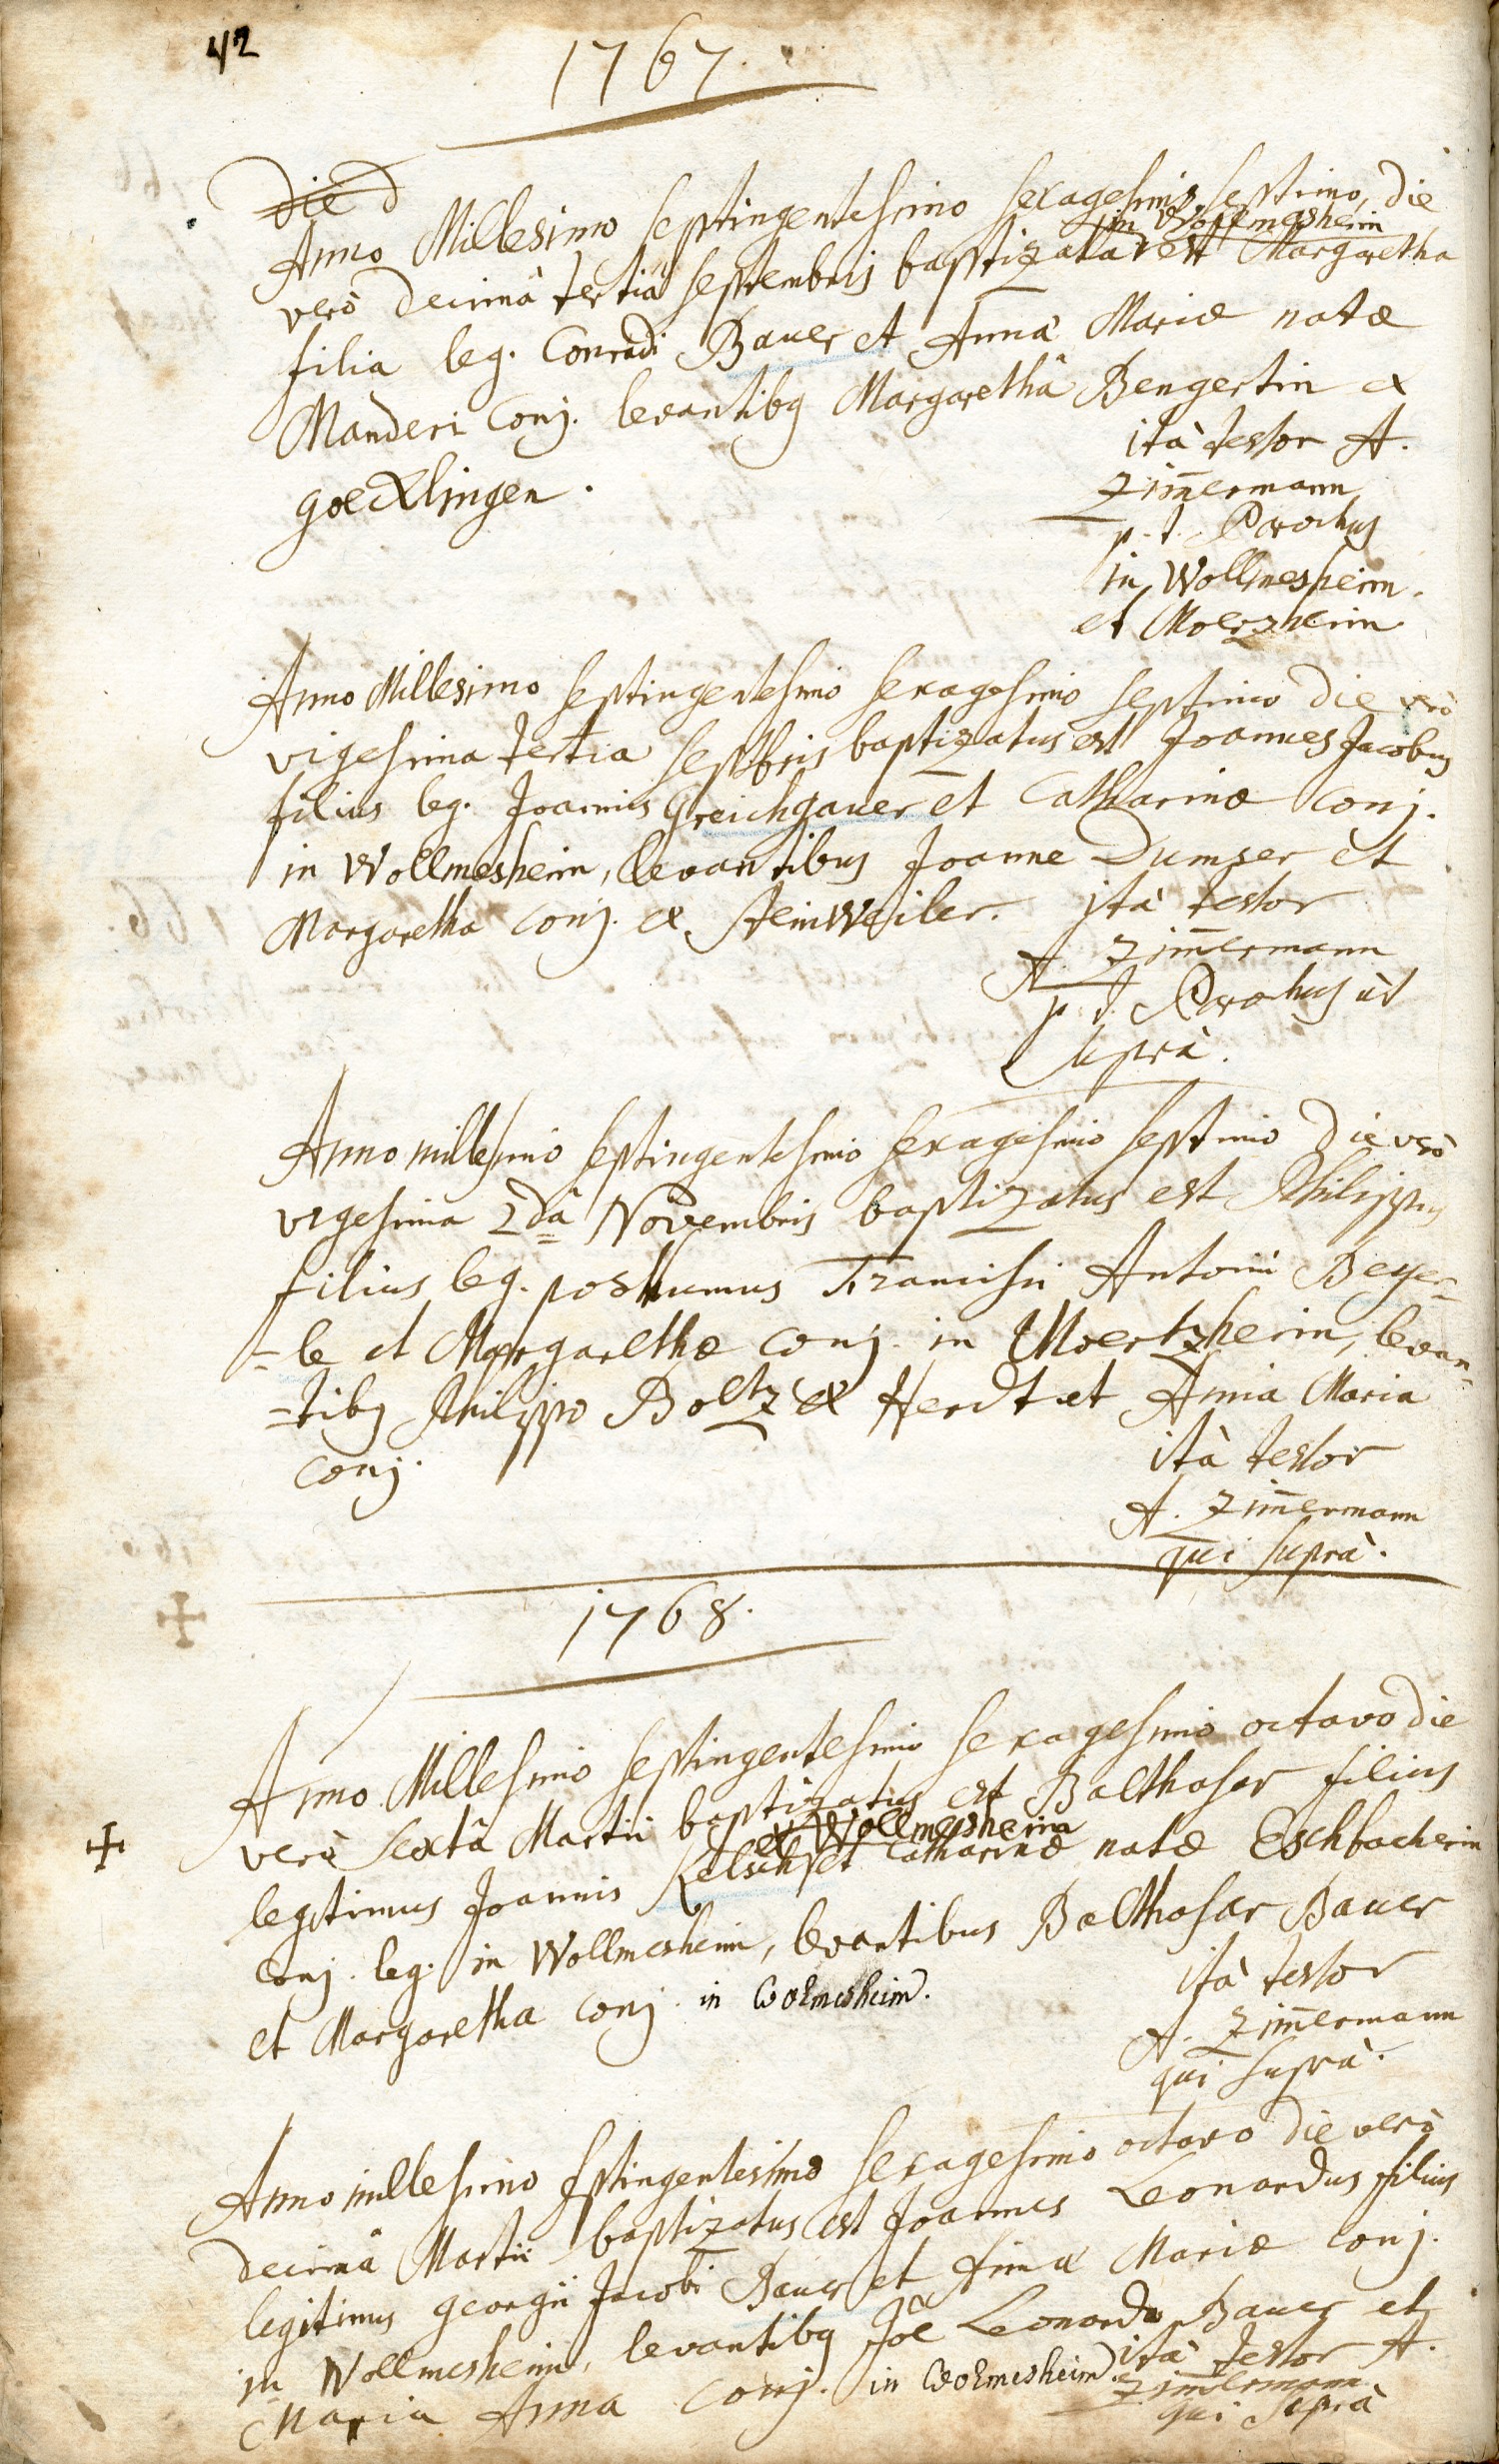 42
1767.
die d
Anno Millesimo septingentesimo sexagesimo septimo, die
in Wollmesheim
vero decimâ tertiâ septembris baptizata est Margaretha
filia leg. Conradi Bauer et Anna Mariæ natæ
Manderi conj. levantibq Margarethâ Bengertin ex
goecklingen.
ità testor A.
Zim̄ermann
p. t. Parochus
in Wollmesheim.
et Moerzheim
Anno Millesimo septingentesimo sexagesimo septimo die verò
vigesima tertia septbris baptizatus est Joannes Jacobus
filius leg. Joannis Greichgauer et Catharinæ conj.
in Wollmesheim, levantibus Joanne Dumser et
Margaretha conj. ex SteinWeiler.
ità testor
A. Zim̄ermann
p. t. Parochus ùt
suprà.
Anno millesimo septingentesimo sexagesimo septimo die verò
vigesima 2dâ Novembris baptizatus est Philippus
filius leg. posthumus Francisci Antonii Beyer-
-le et Margarethæ conj. in Moertzheim, levan-
-tibq Philippo Boltz ex Herdt et Anna Maria
conj.
ità testor
A. Zim̄ermann
qui suprà.
1768.
Anno Millesimo septingentesimo sexagesimo octavo die
verò sextâ Martii baptizatus est Balthasar filius
ex Wollmesheim
legitimus Joannis Kelsch et Catharinæ natæ Eschbacherin
conj. leg. in Wollmesheim, levantibus Balthasar Bauer
et Margaretha conj. in Wolmesheim.
ità testor
A. Zim̄ermann
qui suprà.
Anno millesimo sptingentesimo sexagesimo octavo die verò
decimâ Martii baptizatus est Joannes Leonardus filius
legitimus georgii Jacobi Bauer et Annæ Mariæ conj.
in Wollmesheim, levantibq Jôe Leonardo Bauer et
Maria Anna conj. in Wolmesheim.
ità testor A.
Zim̄ermann
qui suprà